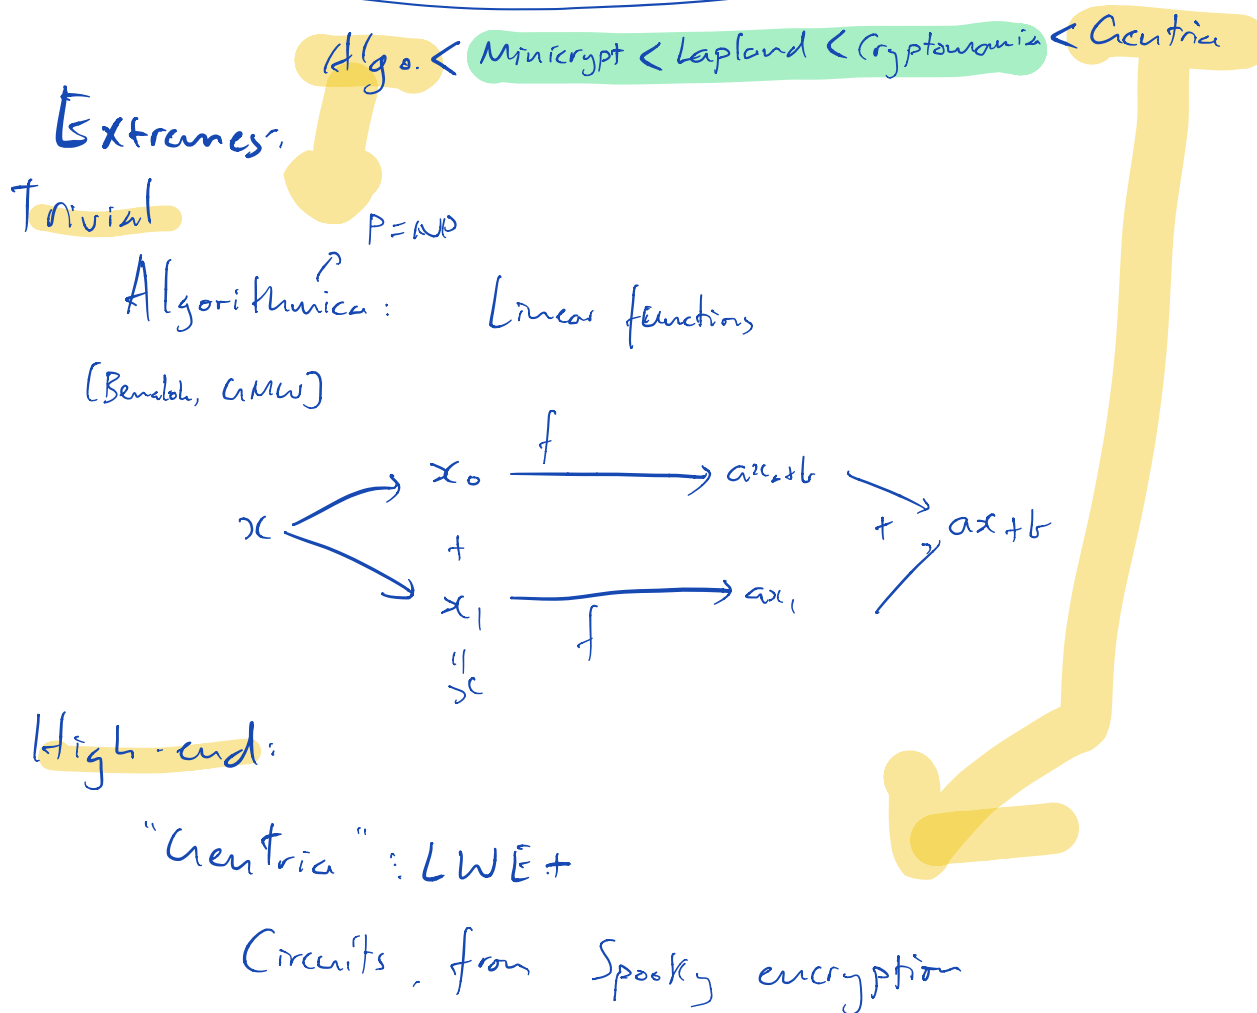 Algo. < Minicrypt < Lapland < Cryptomania < Gentria
Extremes:
Trivial
P=NP
Algorithmica: Linear functions
[Benaloh, GMW]
f
x₀ ax₀+b
x + + ax+b
x₁ ax₁
f
=
x
High-end:
"Gentria": LWE+
Circuits, from Spooky encryption